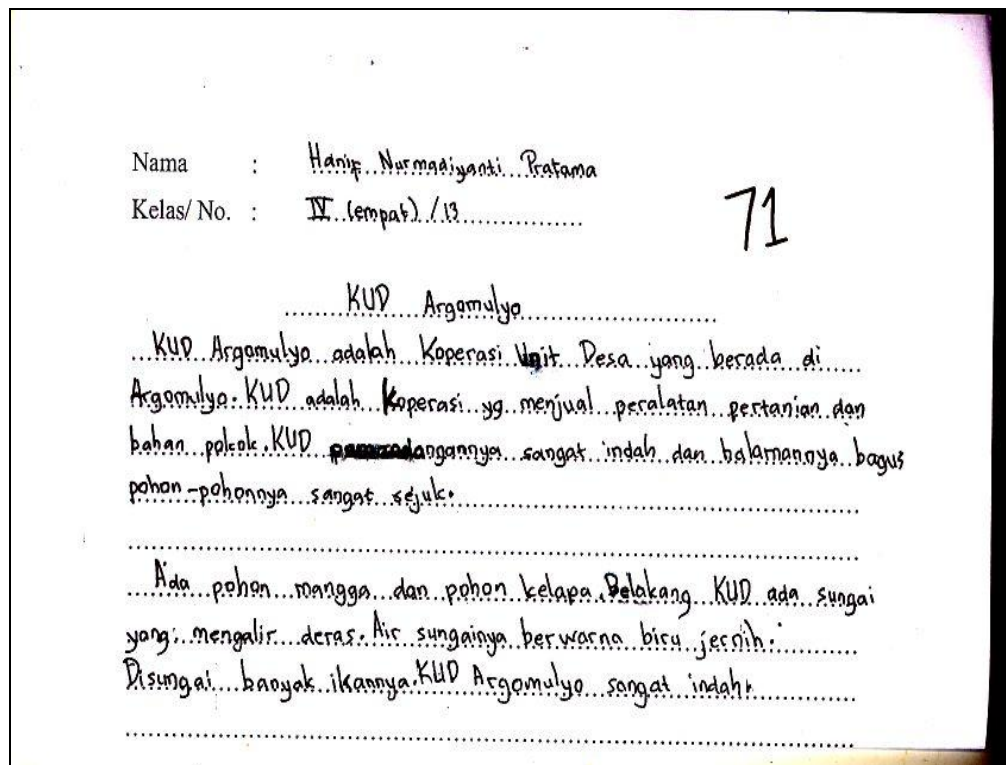 Nama : Hanif Nurmadiyanti Pratama
Kelas/ No. : IV (empat) / 13
71
KUD Argomulyo
KUD Argomulyo adalah Koperasi Unit Desa yang berada di
Argomulyo. KUD adalah Koperasi yg menjual peralatan pertanian dan
bahan pokok. KUD pamandangannya sangat indah dan halamannya bagus
pohon-pohonnya sangat sejuk.
Ada pohon mangga dan pohon kelapa. Belakang KUD ada sungai
yang mengalir deras. Air sungainya berwarna biru jernih.
Disungai banyak ikannya. KUD Argomulyo sangat indah.